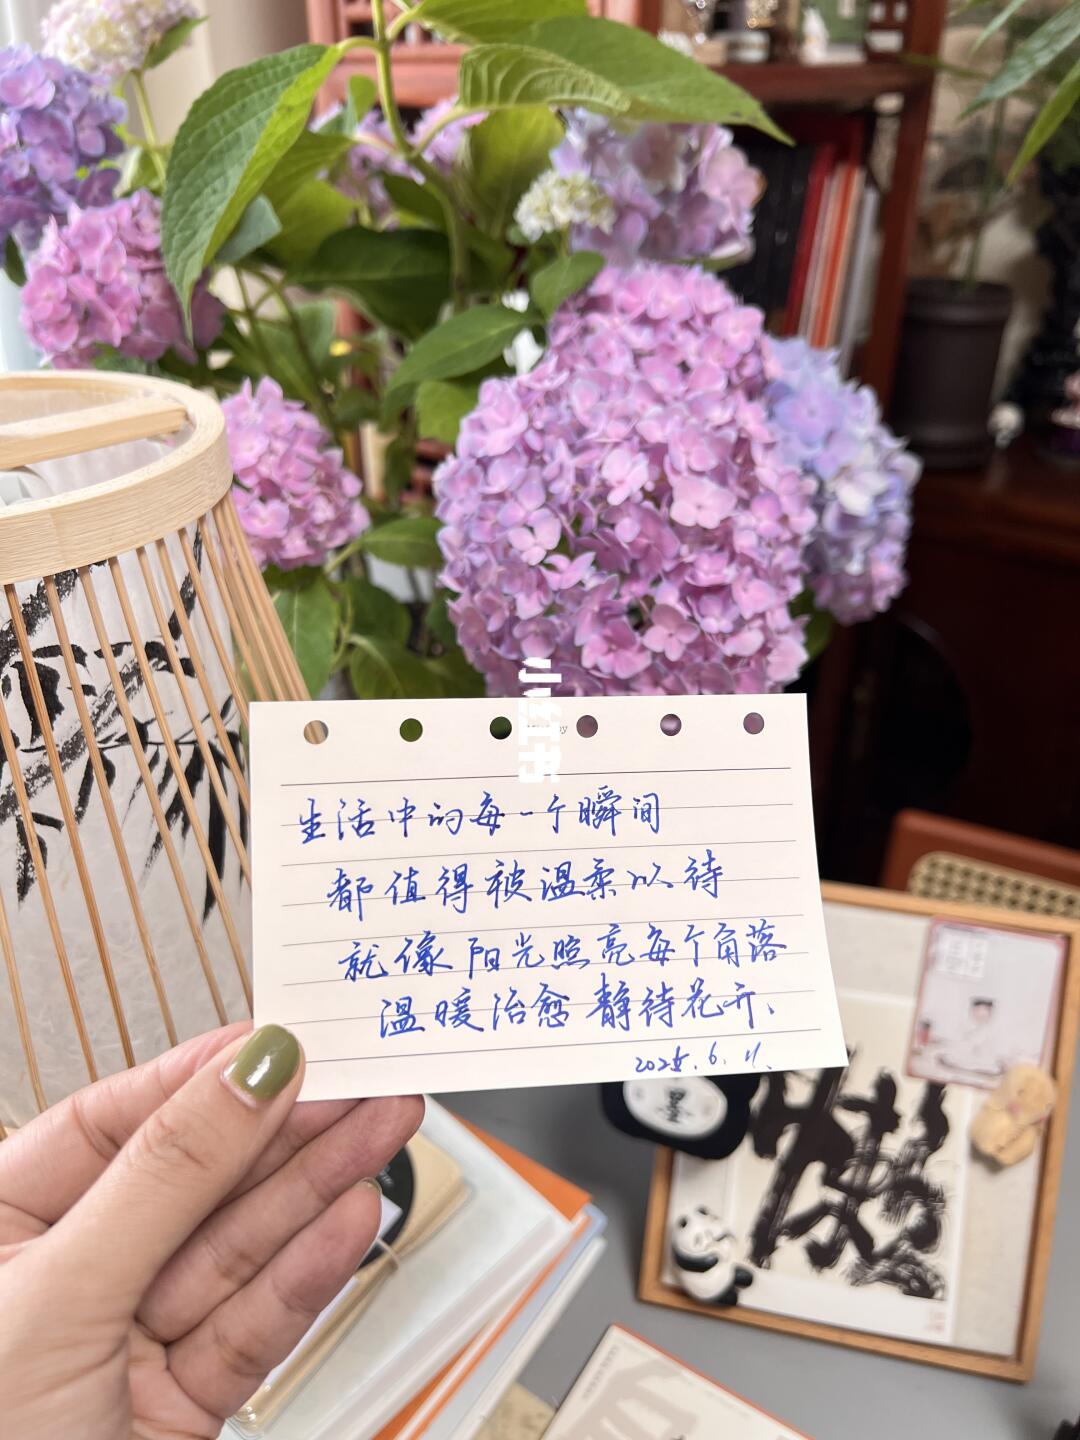 小红书
生活中的每一个瞬间
都值得被温柔以待
就像阳光照亮每个角落
温暖治愈 静待花开、
2025.6.11.